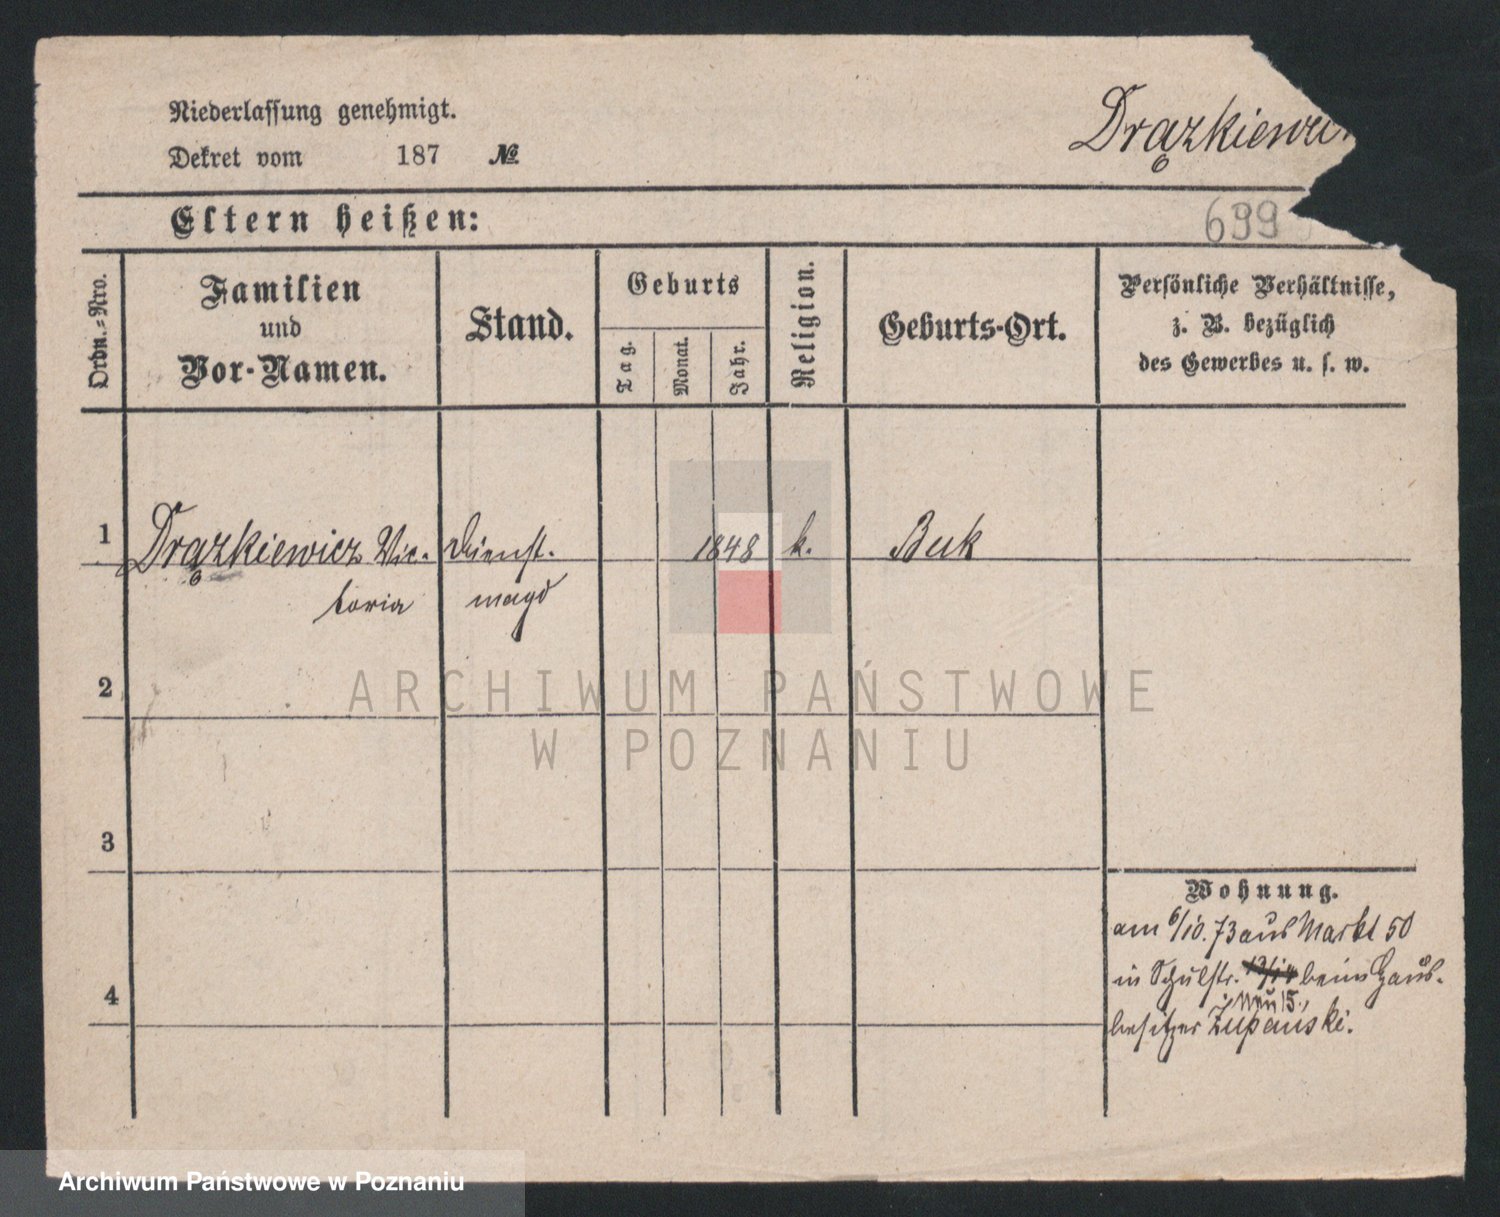 Niederlassung genehmigt.
Dekret vom 187 №
Drązkiewicz
699
Eltern heißen:
Ordn.-Nro.
Familien
und
Vor-Namen.
Stand.
Geburts
Tag.
Monat.
Jahr.
Religion.
Geburts-Ort.
Persönliche Verhältnisse,
z. B. bezüglich
des Gewerbes u. s. w.
1 Drązkiewicz Vic- Dienst- 1848 k. Buk
toria magd
2
3
4
Wohnung.
am 6/10. 73 aus Markt 50
in Schulstr. 13/14 beim Haus-
neu 15.
besitzer Żupański.
ARCHIWUM PAŃSTWOWE
W POZNANIU
Archiwum Państwowe w Poznaniu